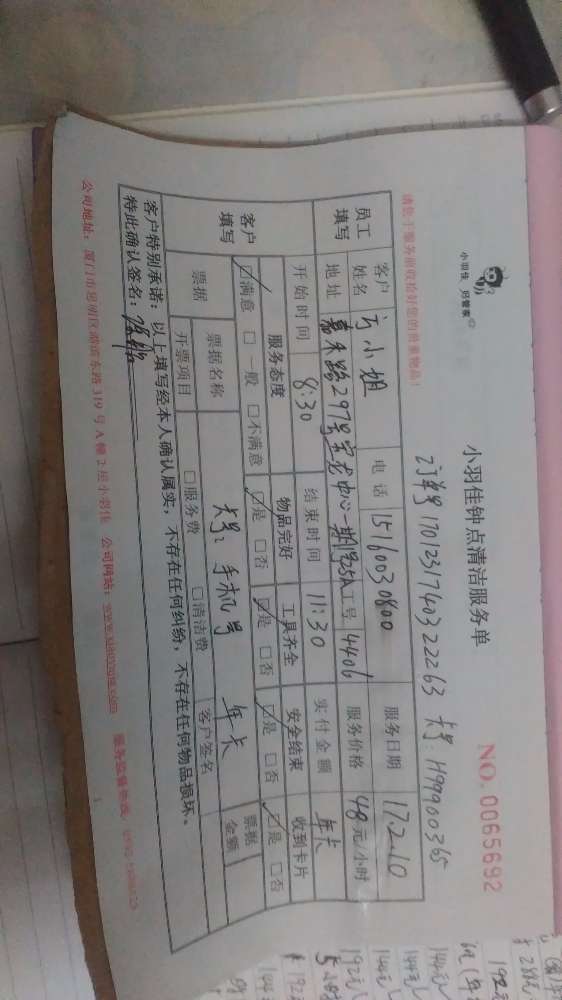 小羽佳 好管家
小羽佳钟点清洁服务单
NO. 0065692
订单号170123174032226 3 卡号: H99900365
请您于服务前收拾好您的贵重物品!
员工填写
客户姓名 亏小姐 电话 15160030800 服务日期 17.2.10
地址 嘉禾路297号宝龙中心一期1925A 工号 4406 服务价格 48元/小时
开始时间 8:30 结束时间 11:30 实付金额 年卡
客户填写
服务态度 物品完好 工具齐全 安全结束 收到卡片
☑满意 □一般 □不满意 ☑是 □否 ☑是 □否 ☑是 □否 ☑是 □否
票据 票据名称 卡号: 手机号 年卡 票据金额
开票项目 □服务费 □清洁费 客户签名
客户特别承诺:以上填写经本人确认属实,不存在任何纠纷,不存在任何物品损坏。
特此确认签名:
公司地址:厦门市思明区湖滨东路319号A幢2层小羽佳 公司网站:www.xiaoyujia.com 服务监督热线:
1